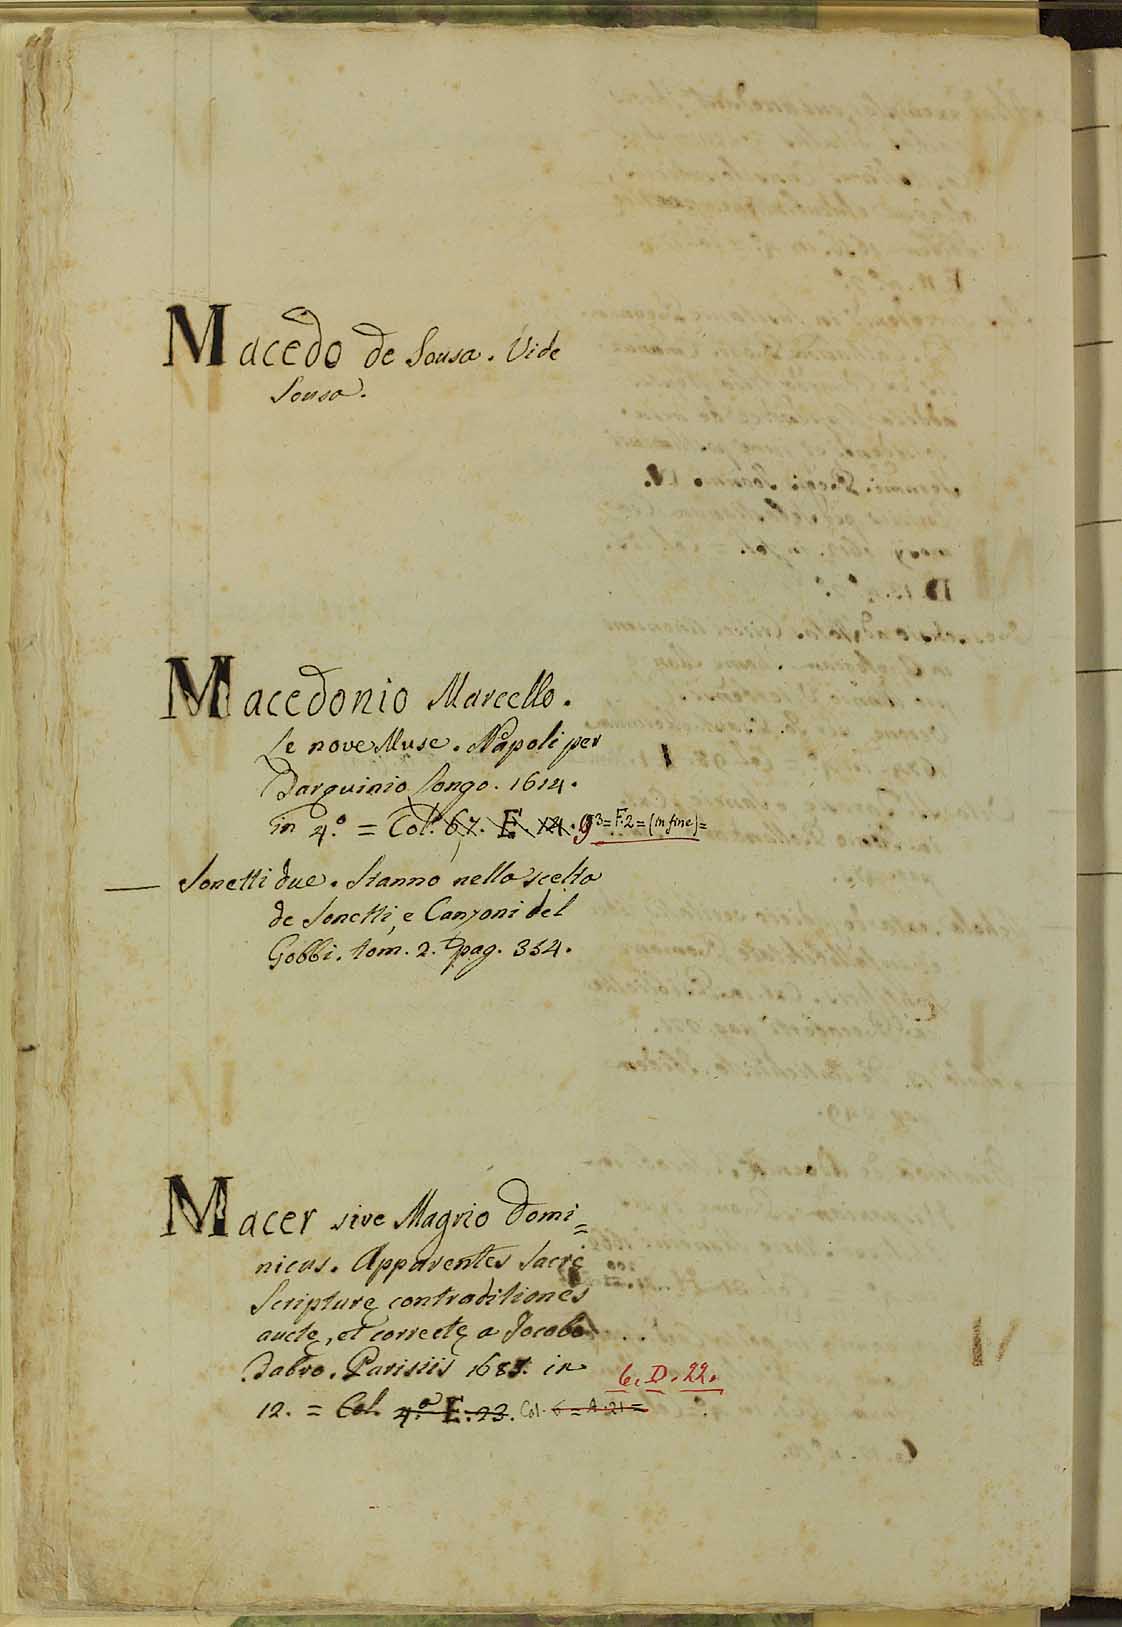 Macedo de Sousa. Vide
Sousa.
Macedonio Marcello.
Le nove Muse. Napoli per
Tarquinio Longo. 1614.
in 4.º = Col. 67. E. 14. 93 = F. 2 = (in fine) =
— Sonetti due. Stanno nella scelta
de Sonetti, e Canzoni del
Gobbi. tom. 2. pag. 354.
Macer sive Magrio Domi=
nicus. Apparentes Sacrę
Scripturę contraditiones
auctę, et correctę a Jacobo
Dabro. Parisiis 1685. in
6. D. 22.
12. = Col. 4.º E. 23. Col. 6 = A. 21 =